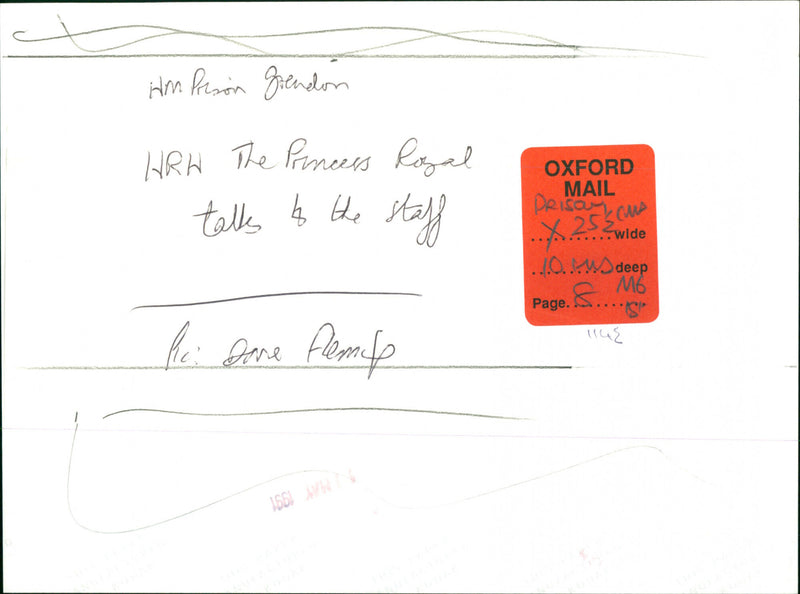 HM Prison Grendon
HRH The Princess Royal
talks to the staff
Pic: Dave Fleming
OXFORD
MAIL
PRISON
X 252 cms wide
10 cms deep
Page. 8 M6
MAY 1991